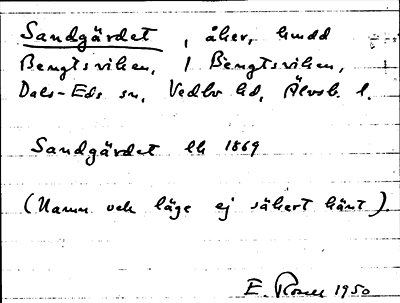 Sandgärdet, åker, hmdd
Bengtsviken, 1 Bengtsviken,
Dals-Eds sn, Vedbo hd, Älvsb. l.
Sandgärdet lk 1869
(Namn och läge ej säkert känt).
E. 1950